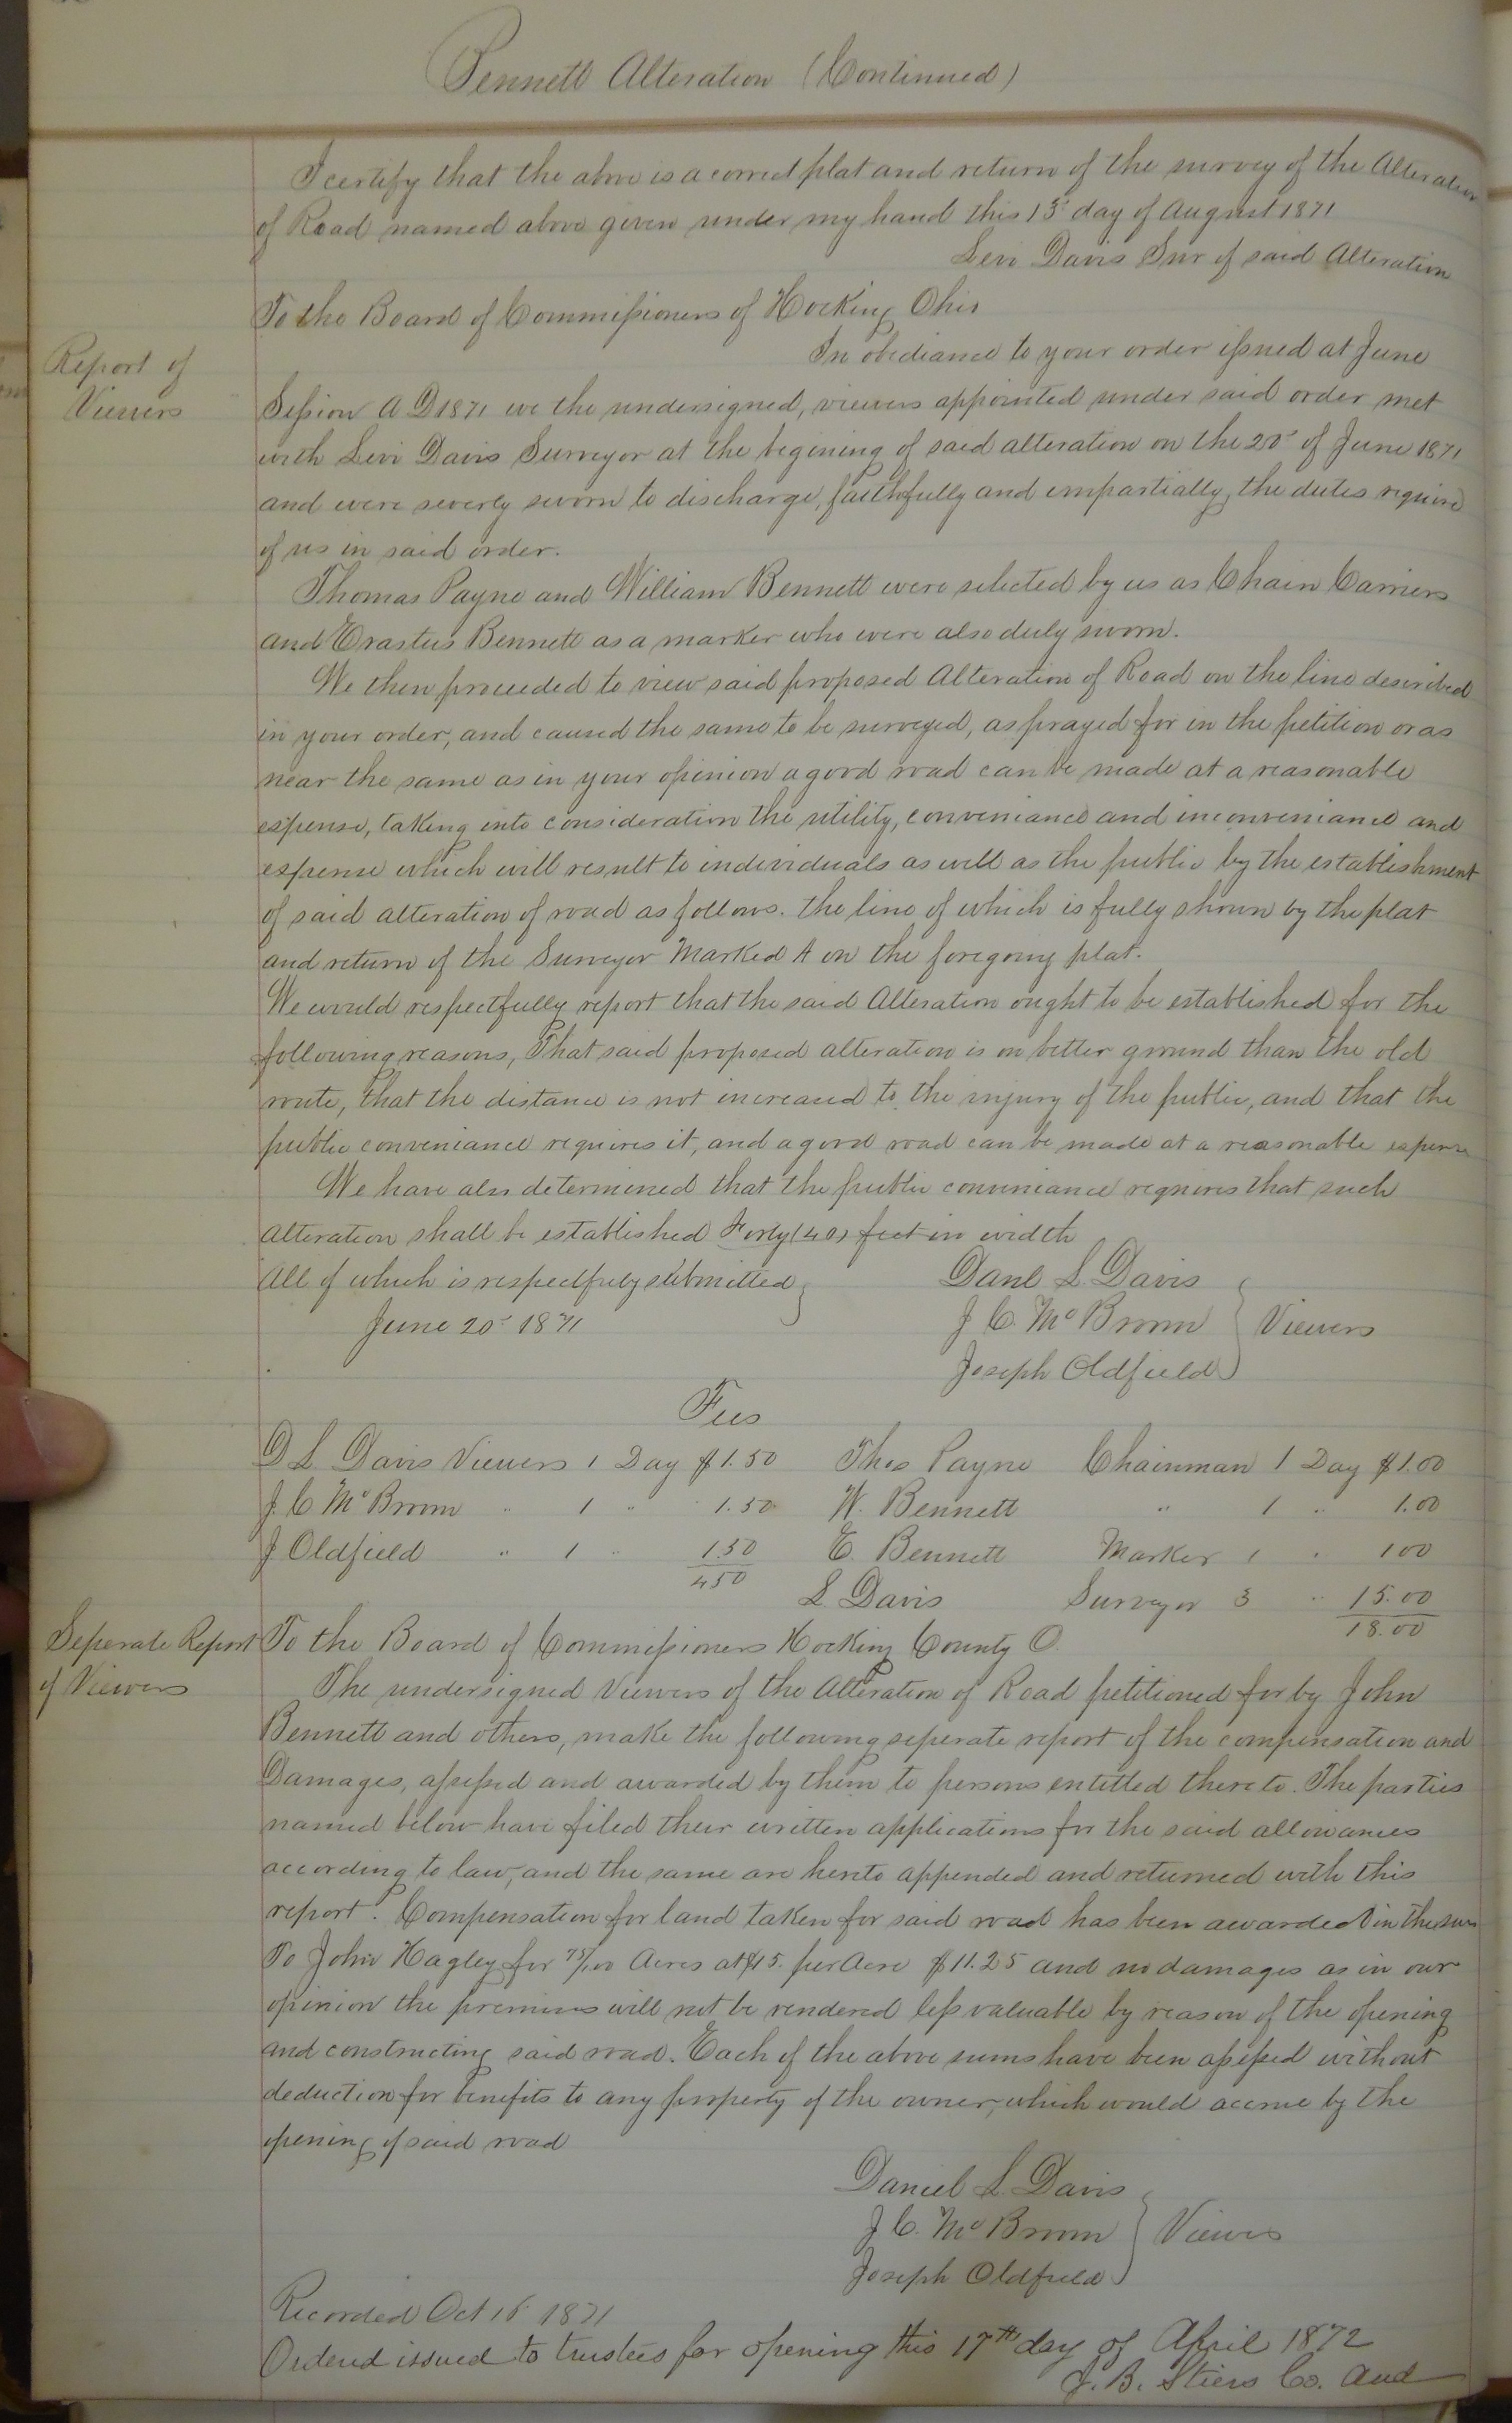 Bennett Alteration (Continued)
I certify that the above is a correct plat and return of the survey of the Alteration
of Road named above given under my hand this 15 day of August 1871
Levi Davis Sur of said Alteration
To the Board of Commissioners of Hocking Ohio
Report of
Viewers
In obediance to your order issued at June
Session A D 1871 we the undersigned, viewers appointed under said order met
with Levi Davis Surveyor at the begining of said alteration on the 20 of June 1871
and were severly sworn to discharge, faithfully and impartially, the duties required
of us in said order.
Thomas Payne and William Bennett were selected by us as Chain Carriers
and Erastus Bennett as a marker who were also duly sworn.
We then proceeded to view said proposed Alteration of Road on the line described
in your order, and caused the same to be surveyed, as prayed for in the petition or as
near the same as in your opinion a good road can be made at a reasonable
expense, taking into consideration the utility, conveniance and inconveniance and
expense which will result to individuals as well as the public by the establishment
of said alteration of road as follows. the line of which is fully shown by the plat
and return of the Surveyor Marked A on the foregoing plat.
We would respectfully report that the said Alteration ought to be established for the
following reasons, That said proposed alteration is on better ground than the old
route, that the distance is not increased to the injury of the public, and that the
public conveniance requires it, and a good road can be made at a reasonable expense
We have also determined that the public conveniance requires that such
alteration shall be established Forty (40) feet in width
All of which is respectfuly submitted
June 20 1871
Danl L. Davis
J C. McBroom Viewers
Joseph Oldfield
Fees
D L Davis Viewers 1 Day $1.50 Thos Payne Chainman 1 Day $1.00
J. C McBroom " 1 " 1.50 W. Bennett " 1 " 1.00
J Oldfield " 1 " 1.50 E. Bennett Marker 1 " 1 00
4 50 L Davis Surveyor 3 " 15.00
18.00
Seperate Report
of Viewers
To the Board of Commissioners Hocking County O.
The undersigned Viewers of the Alteration of Road petitioned for by John
Bennett and others, make the following seperate report of the compensation and
Damages, assessed and awarded by them to persons entitled thereto. The parties
named below have filed their written applications for the said allowances
according to law, and the same are hereto appended and returned with this
report. Compensation for land taken for said road has been awarded in the sum
To John Hagley for 75/100 Acres at $15. per Acre $11.25 and no damages as in our
opinion the premises will not be rendered less valuable by reason of the opening
and constructing said road. Each of the above sums have been assessed without
deduction for benefits to any property of the owner, which would accrue by the
opening of said road
Daniel L. Davis
J C. McBroom Viewers
Joseph Oldfield
Recorded Oct 16 1871
Ordered issued to trustees for opening this 17th day of April 1872
J. B. Stiers Co. Aud